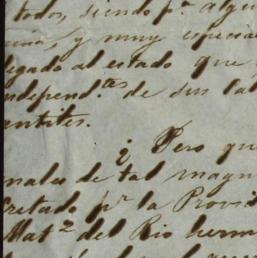 todos, siendo pr. algu
, y muy especia
legado al estado que
independtes de sus la
antites.
¿ Pero qu
males de tal magn
cretado pr. la Provid
Matz del Rio herm